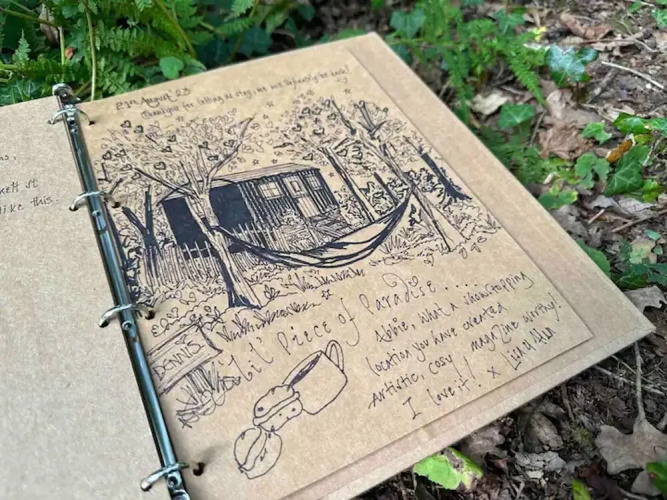 ns,
kett st
like this.
August 23
Thankyou for letting us stay, we will definitely be back!
Lil' Piece of Paradise....
DENNIS
what a showstopping
location you have created
Artistic, cosy & magazine worthy!
I love it!! x